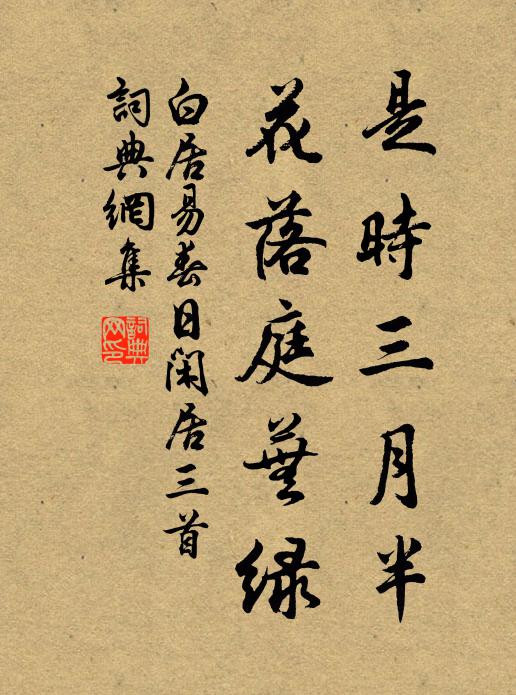 是時三月半
花落庭蕪綠
白居易春日閑居三首
詞典網集
詞典网印